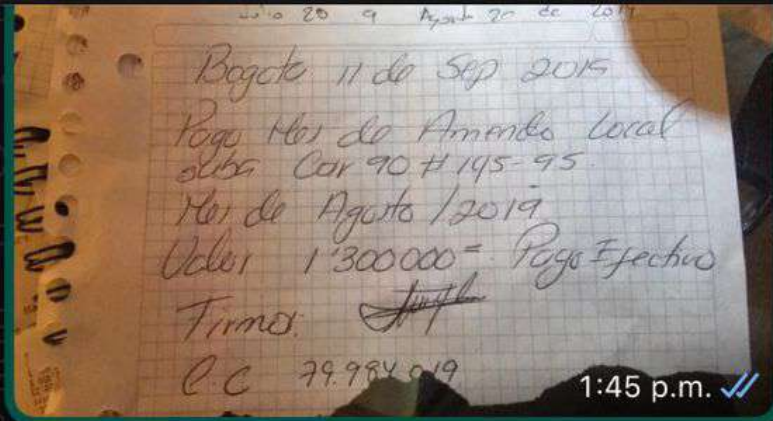 Julio 20 a Agosto 20 de 2019
Bogota 11 de Sep 2019
Pago Mes de Arriendo Local
suba Car 90 # 145-95.
Mes de Agosto / 2019
Valor 1'300000= Pago Efectivo
Firma:
C.C 79.984.019
1:45 p.m.